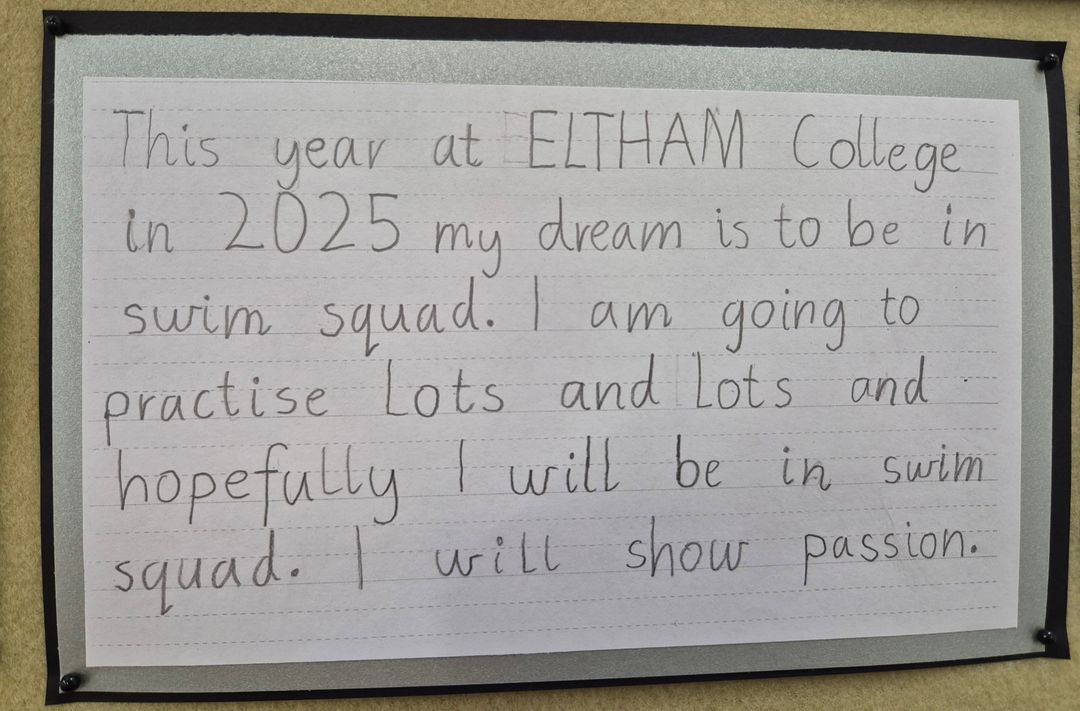 This year at ELTHAM College
in 2025 my dream is to be in
swim squad. I am going to
practise lots and lots and
hopefully I will be in swim
squad. I will show passion.